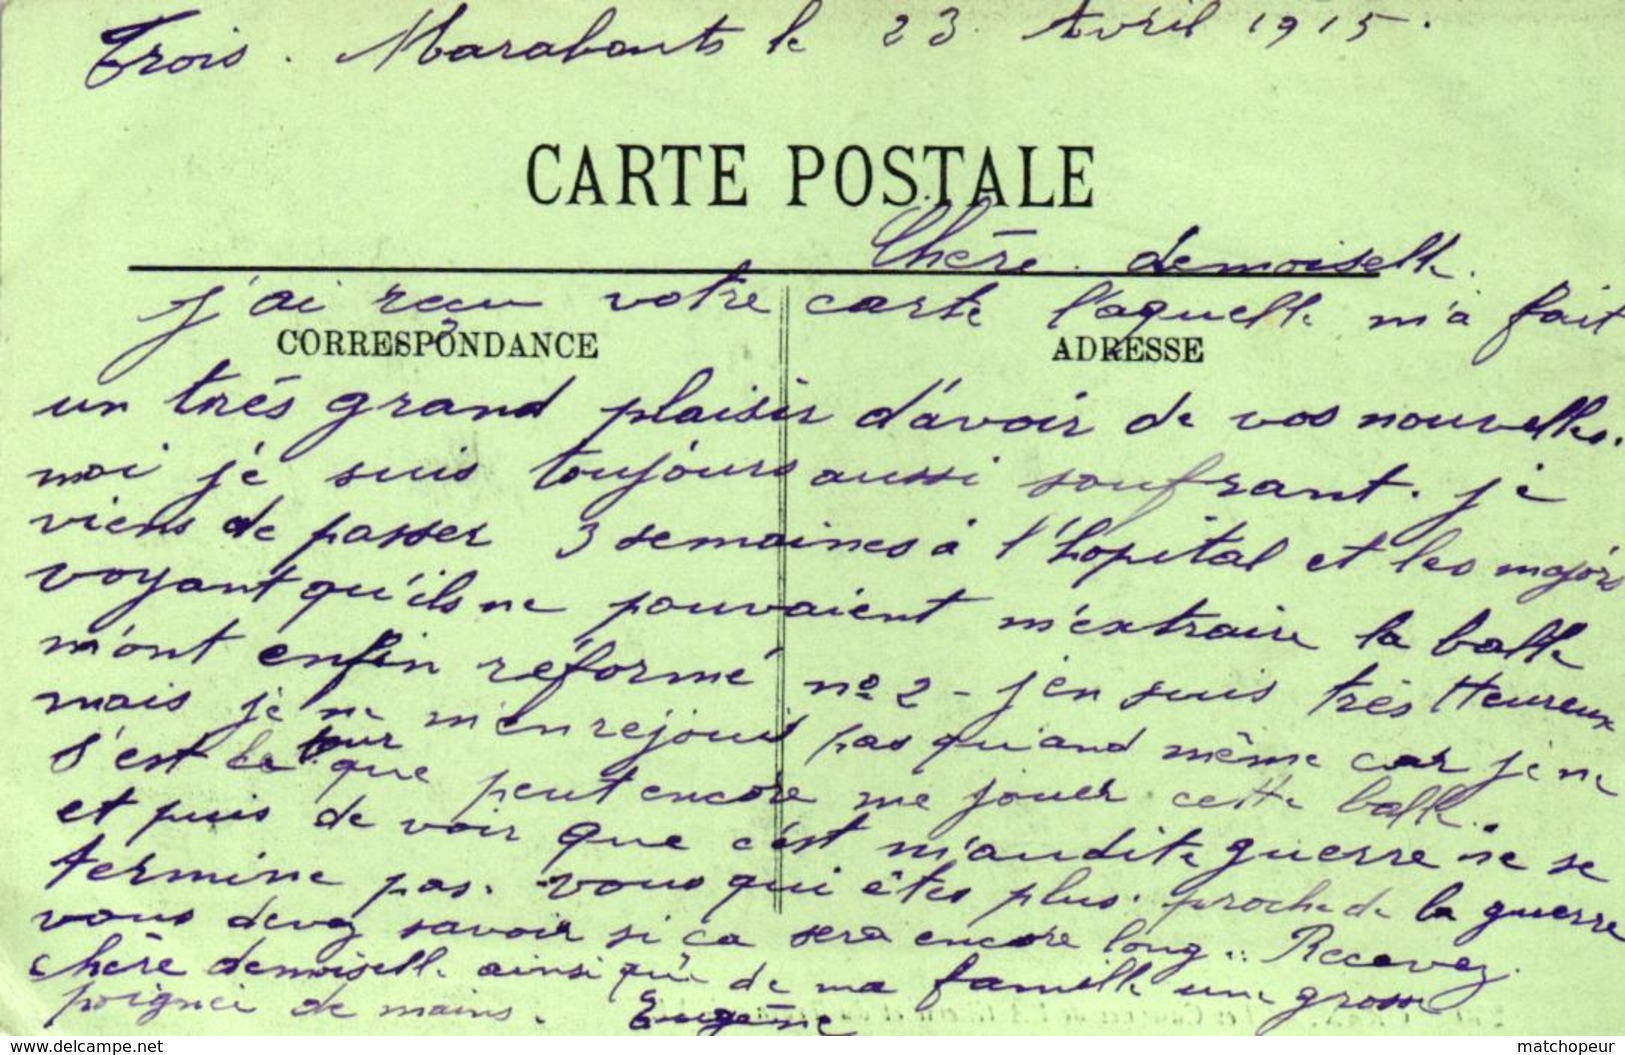 Trois. Marabouts le 23 Avril 1915.
CARTE POSTALE
Chère. demoiselle.
j'ai reçu votre carte l'aquelle m'a fait
CORRESPONDANCE
ADRESSE
un très grand plaisir d'avoir de vos nouvelles.
moi je suis toujours aussi soufrant. je
viens de passer 3 semaines à l'hopital et les majors
voyant qu'ils ne pouvaient m'extraire la balle
m'ont enfin réformé n° 2 - j'en suis très Heureux
mais je ne m'en rejouis pas qu'and même car je ne
s'est le tour que peut encore me jouer cette balle.
et puis de voir que c'est m'audite guerre ne se
termine pas. vous qui êtes plus. proche de la guerre
vous devez savoir si ca sera encore long.. Recevez.
chère demoiselle ainsi que de ma famille une grosse
poignei de mains. Eugène
www.delcampe.net
matchopeur